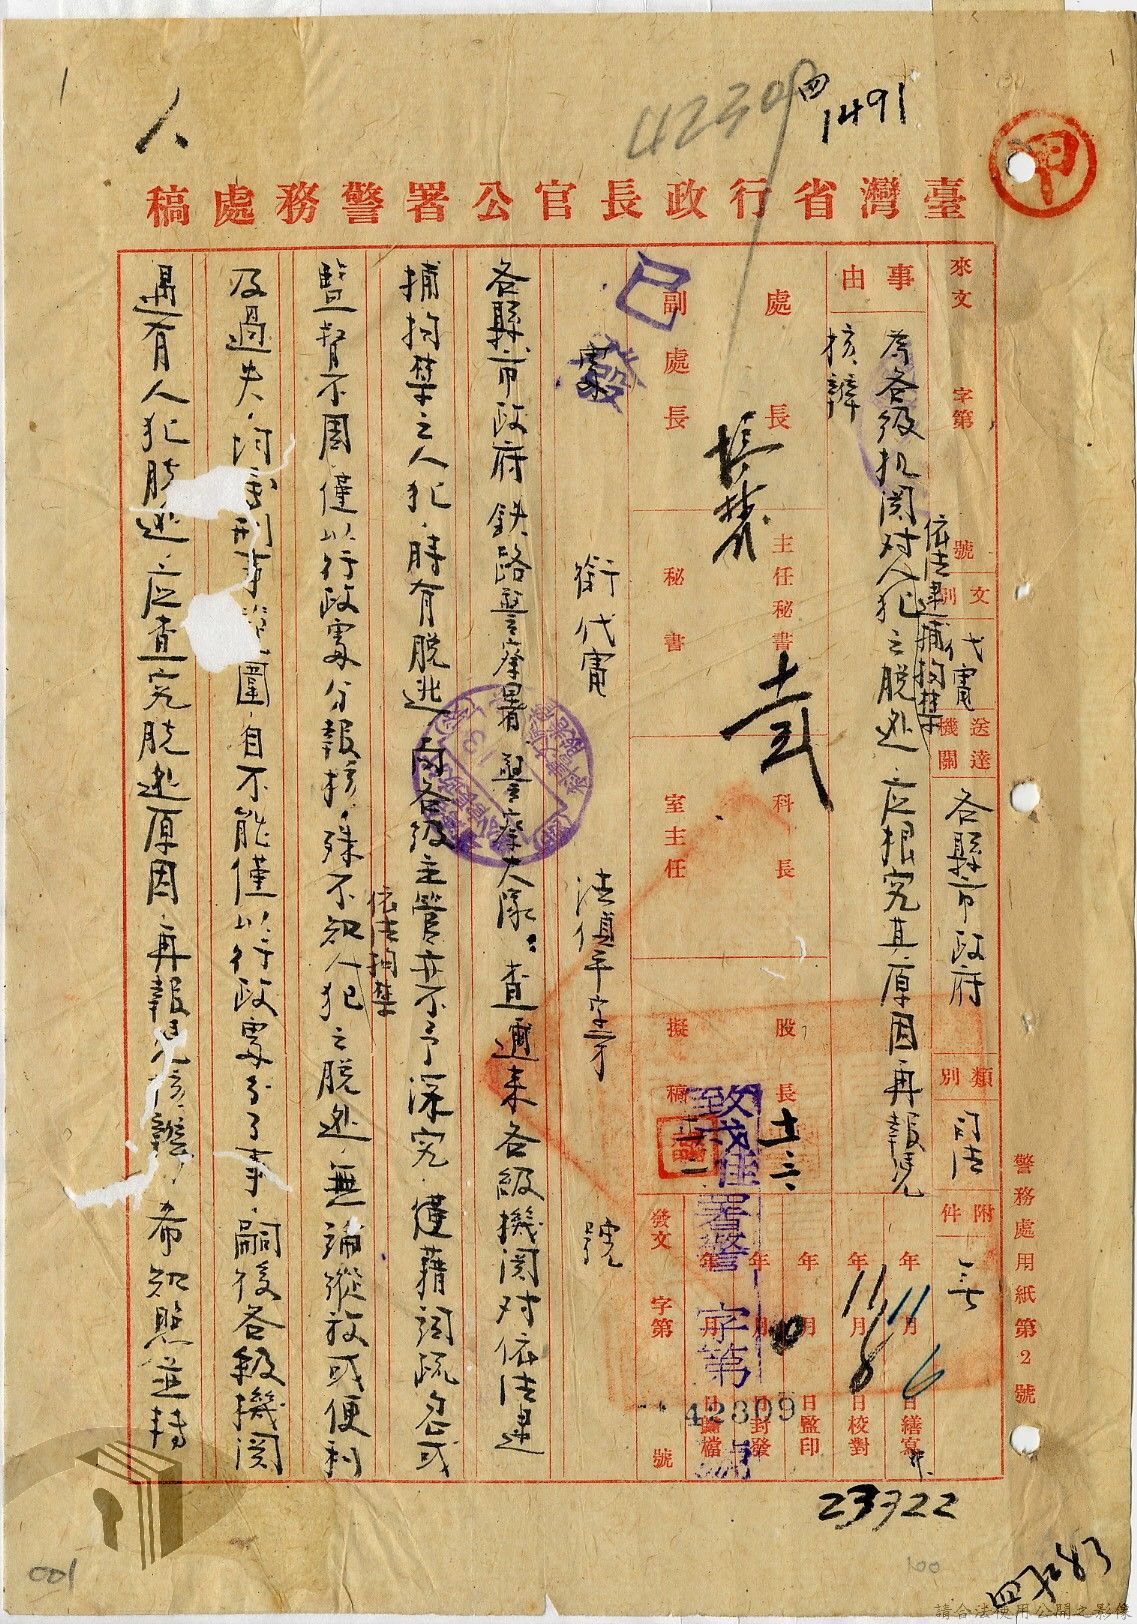 1491
42309
甲
臺灣省行政長官公署警務處稿
來文 字第 號
文別 代電
送達機關 各縣市政府
類別 司法
附件 無
事由
為各級机関对依法逮捕拘禁人犯之脱逃应根究其原因再報憑
核辦
處長
主任秘書
科長
股長
副處長
秘書
室主任
擬稿
年 月 日繕寫
年 月 日校對
年 月 日監印
年 月 日封發
年 月 日歸檔
發文 字第 號
11 6
11 8
署警 字第 號
42309
已發
衔代電 法偵平字第 號
各縣市政府鉄路警察署警察大隊：查邇来各級機関对依法逮
捕拘禁之人犯，時有脱逃，而各級主管亦不予深究，僅藉詞疏忽或
監督不周，僅以行政處分報核，殊不知依法拘禁人犯之脱逃，無論縱放或便利
及過失，均 刑事 圍，自不能僅以行政處分了事，嗣後各級機関
遇有人犯脱逃，应查究脱逃原因，再報 核辦，希知照並轉
警務處用紙第2號
23322
001
100
請合法使用公開之影像